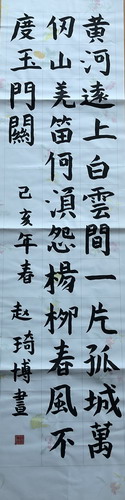 黄河遠上白雲間一片孤城萬
仞山羌笛何湏怨楊柳春風不
度玉門關 己亥年春 赵琦博書